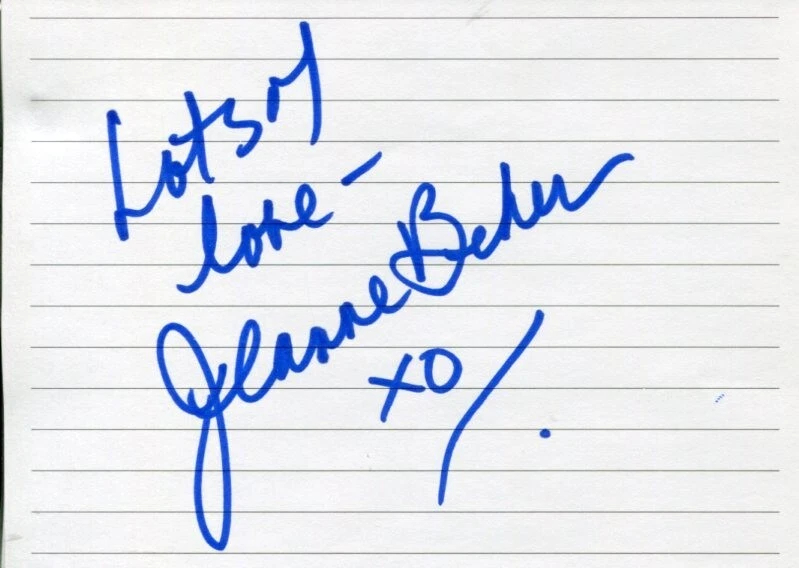 Lots of
love -
Jeanne Beker
XO!